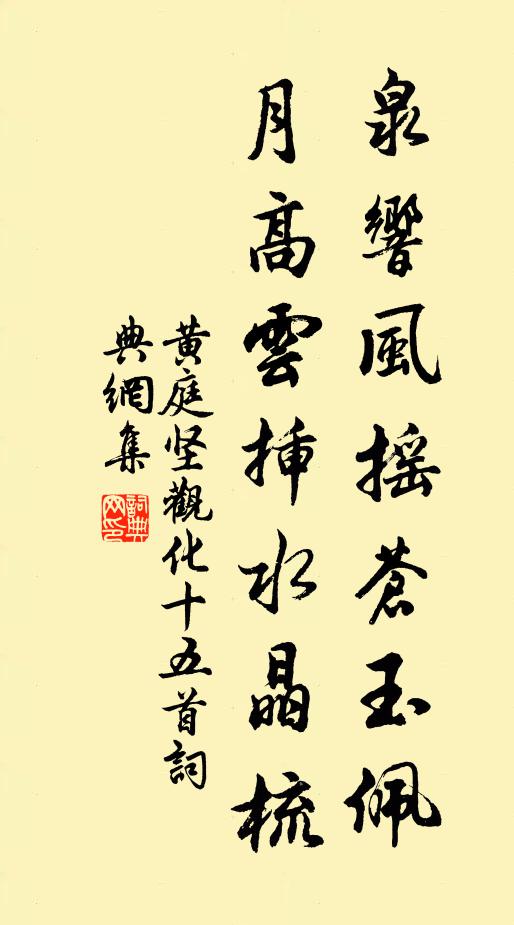 泉響風摇蒼玉佩
月高雲挿水晶梳
黄庭坚觀化十五首詞
典網集
詞典
网印